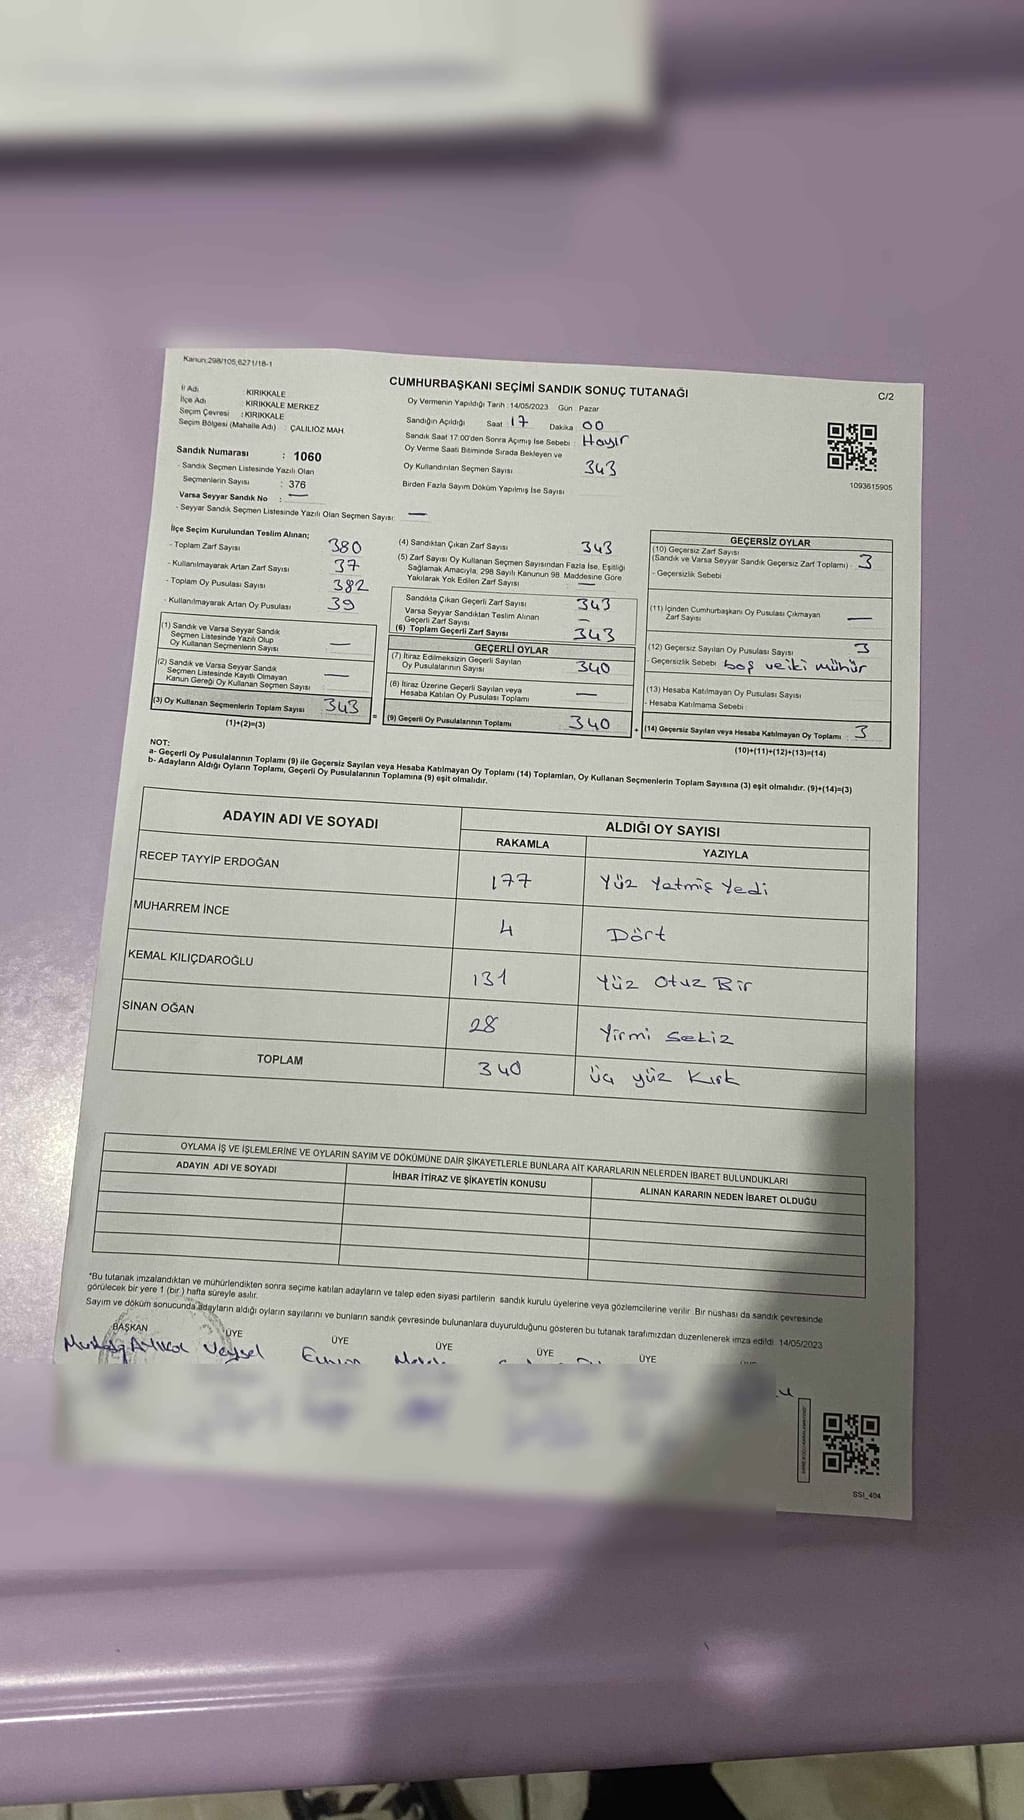 Kanun:298/105,6271/18-1
CUMHURBAŞKANI SEÇİMİ SANDIK SONUÇ TUTANAĞI
C/2
İl Adı KIRIKKALE
İlçe Adı : KIRIKKALE MERKEZ
Seçim Çevresi : KIRIKKALE
Seçim Bölgesi (Mahalle Adı) : ÇALILIÖZ MAH.
Sandık Numarası : 1060
- Sandık Seçmen Listesinde Yazılı Olan
Seçmenlerin Sayısı : 376
Varsa Seyyar Sandık No : —
- Seyyar Sandık Seçmen Listesinde Yazılı Olan Seçmen Sayısı: —
Oy Vermenin Yapıldığı Tarih : 14/05/2023 Gün : Pazar
Sandığın Açıldığı Saat 17 Dakika 00
Sandık Saat 17:00'den Sonra Açımış İse Sebebi : Hayır
Oy Verme Saati Bitiminde Sırada Bekleyen ve
Oy Kullandırılan Seçmen Sayısı 343
Birden Fazla Sayım Döküm Yapılmış İse Sayısı
1093615905
İlçe Seçim Kurulundan Teslim Alınan;
- Toplam Zarf Sayısı 380
- Kullanılmayarak Artan Zarf Sayısı 37
- Toplam Oy Pusulası Sayısı 382
- Kullanılmayarak Artan Oy Pusulası 39
(1) Sandık ve Varsa Seyyar Sandık
Seçmen Listesinde Yazılı Olup
Oy Kullanan Seçmenlerin Sayısı —
(2) Sandık ve Varsa Seyyar Sandık
Seçmen Listesinde Kayıtlı Olmayan
Kanun Gereği Oy Kullanan Seçmen Sayısı —
(3) Oy Kullanan Seçmenlerin Toplam Sayısı 343
(1)+(2)=(3)
(4) Sandıktan Çıkan Zarf Sayısı 343
(5) Zarf Sayısı Oy Kullanan Seçmen Sayısından Fazla İse, Eşitliği
Sağlamak Amacıyla, 298 Sayılı Kanunun 98. Maddesine Göre
Yakılarak Yok Edilen Zarf Sayısı —
Sandıkta Çıkan Geçerli Zarf Sayısı 343
Varsa Seyyar Sandıktan Teslim Alınan
Geçerli Zarf Sayısı —
(6) Toplam Geçerli Zarf Sayısı 343
GEÇERLİ OYLAR
(7) İtiraz Edilmeksizin Geçerli Sayılan
Oy Pusulalarının Sayısı 340
(8) İtiraz Üzerine Geçerli Sayılan veya
Hesaba Katılan Oy Pusulası Toplamı —
= (9) Geçerli Oy Pusulalarının Toplamı 340
GEÇERSİZ OYLAR
(10) Geçersiz Zarf Sayısı
(Sandık ve Varsa Seyyar Sandık Geçersiz Zarf Toplamı) : 3
- Geçersizlik Sebebi
(11) İçinden Cumhurbaşkanı Oy Pusulası Çıkmayan
Zarf Sayısı —
(12) Geçersiz Sayılan Oy Pusulası Sayısı 3
- Geçersizlik Sebebi boş ve iki mühür
(13) Hesaba Katılmayan Oy Pusulası Sayısı
- Hesaba Katılmama Sebebi :
+ (14) Geçersiz Sayılan veya Hesaba Katılmayan Oy Toplamı : 3
(10)+(11)+(12)+(13)=(14)
NOT:
a- Geçerli Oy Pusulalarının Toplamı (9) ile Geçersiz Sayılan veya Hesaba Katılmayan Oy Toplamı (14) Toplamları, Oy Kullanan Seçmenlerin Toplam Sayısına (3) eşit olmalıdır. (9)+(14)=(3)
b- Adayların Aldığı Oyların Toplamı, Geçerli Oy Pusulalarının Toplamına (9) eşit olmalıdır.
ADAYIN ADI VE SOYADI ALDIĞI OY SAYISI
RAKAMLA YAZIYLA
RECEP TAYYİP ERDOĞAN 177 Yüz Yetmiş Yedi
MUHARREM İNCE 4 Dört
KEMAL KILIÇDAROĞLU 131 Yüz Otuz Bir
SİNAN OĞAN 28 Yirmi Sekiz
TOPLAM 340 Üç yüz Kırk
OYLAMA İŞ VE İŞLEMLERİNE VE OYLARIN SAYIM VE DÖKÜMÜNE DAİR ŞİKAYETLERLE BUNLARA AİT KARARLARIN NELERDEN İBARET BULUNDUKLARI
ADAYIN ADI VE SOYADI İHBAR İTİRAZ VE ŞİKAYETİN KONUSU ALINAN KARARIN NEDEN İBARET OLDUĞU
*Bu tutanak imzalandıktan ve mühürlendikten sonra seçime katılan adayların ve talep eden siyasi partilerin sandık kurulu üyelerine veya gözlemcilerine verilir. Bir nüshası da sandık çevresinde
görülecek bir yere 1 (bir ) hafta süreyle asılır.
Sayım ve döküm sonucunda adayların aldığı oyların sayılarını ve bunların sandık çevresinde bulunanlara duyurulduğunu gösteren bu tutanak tarafımızdan düzenlenerek imza edildi. 14/05/2023
BAŞKAN ÜYE ÜYE ÜYE ÜYE ÜYE
Veysel
SSI_404